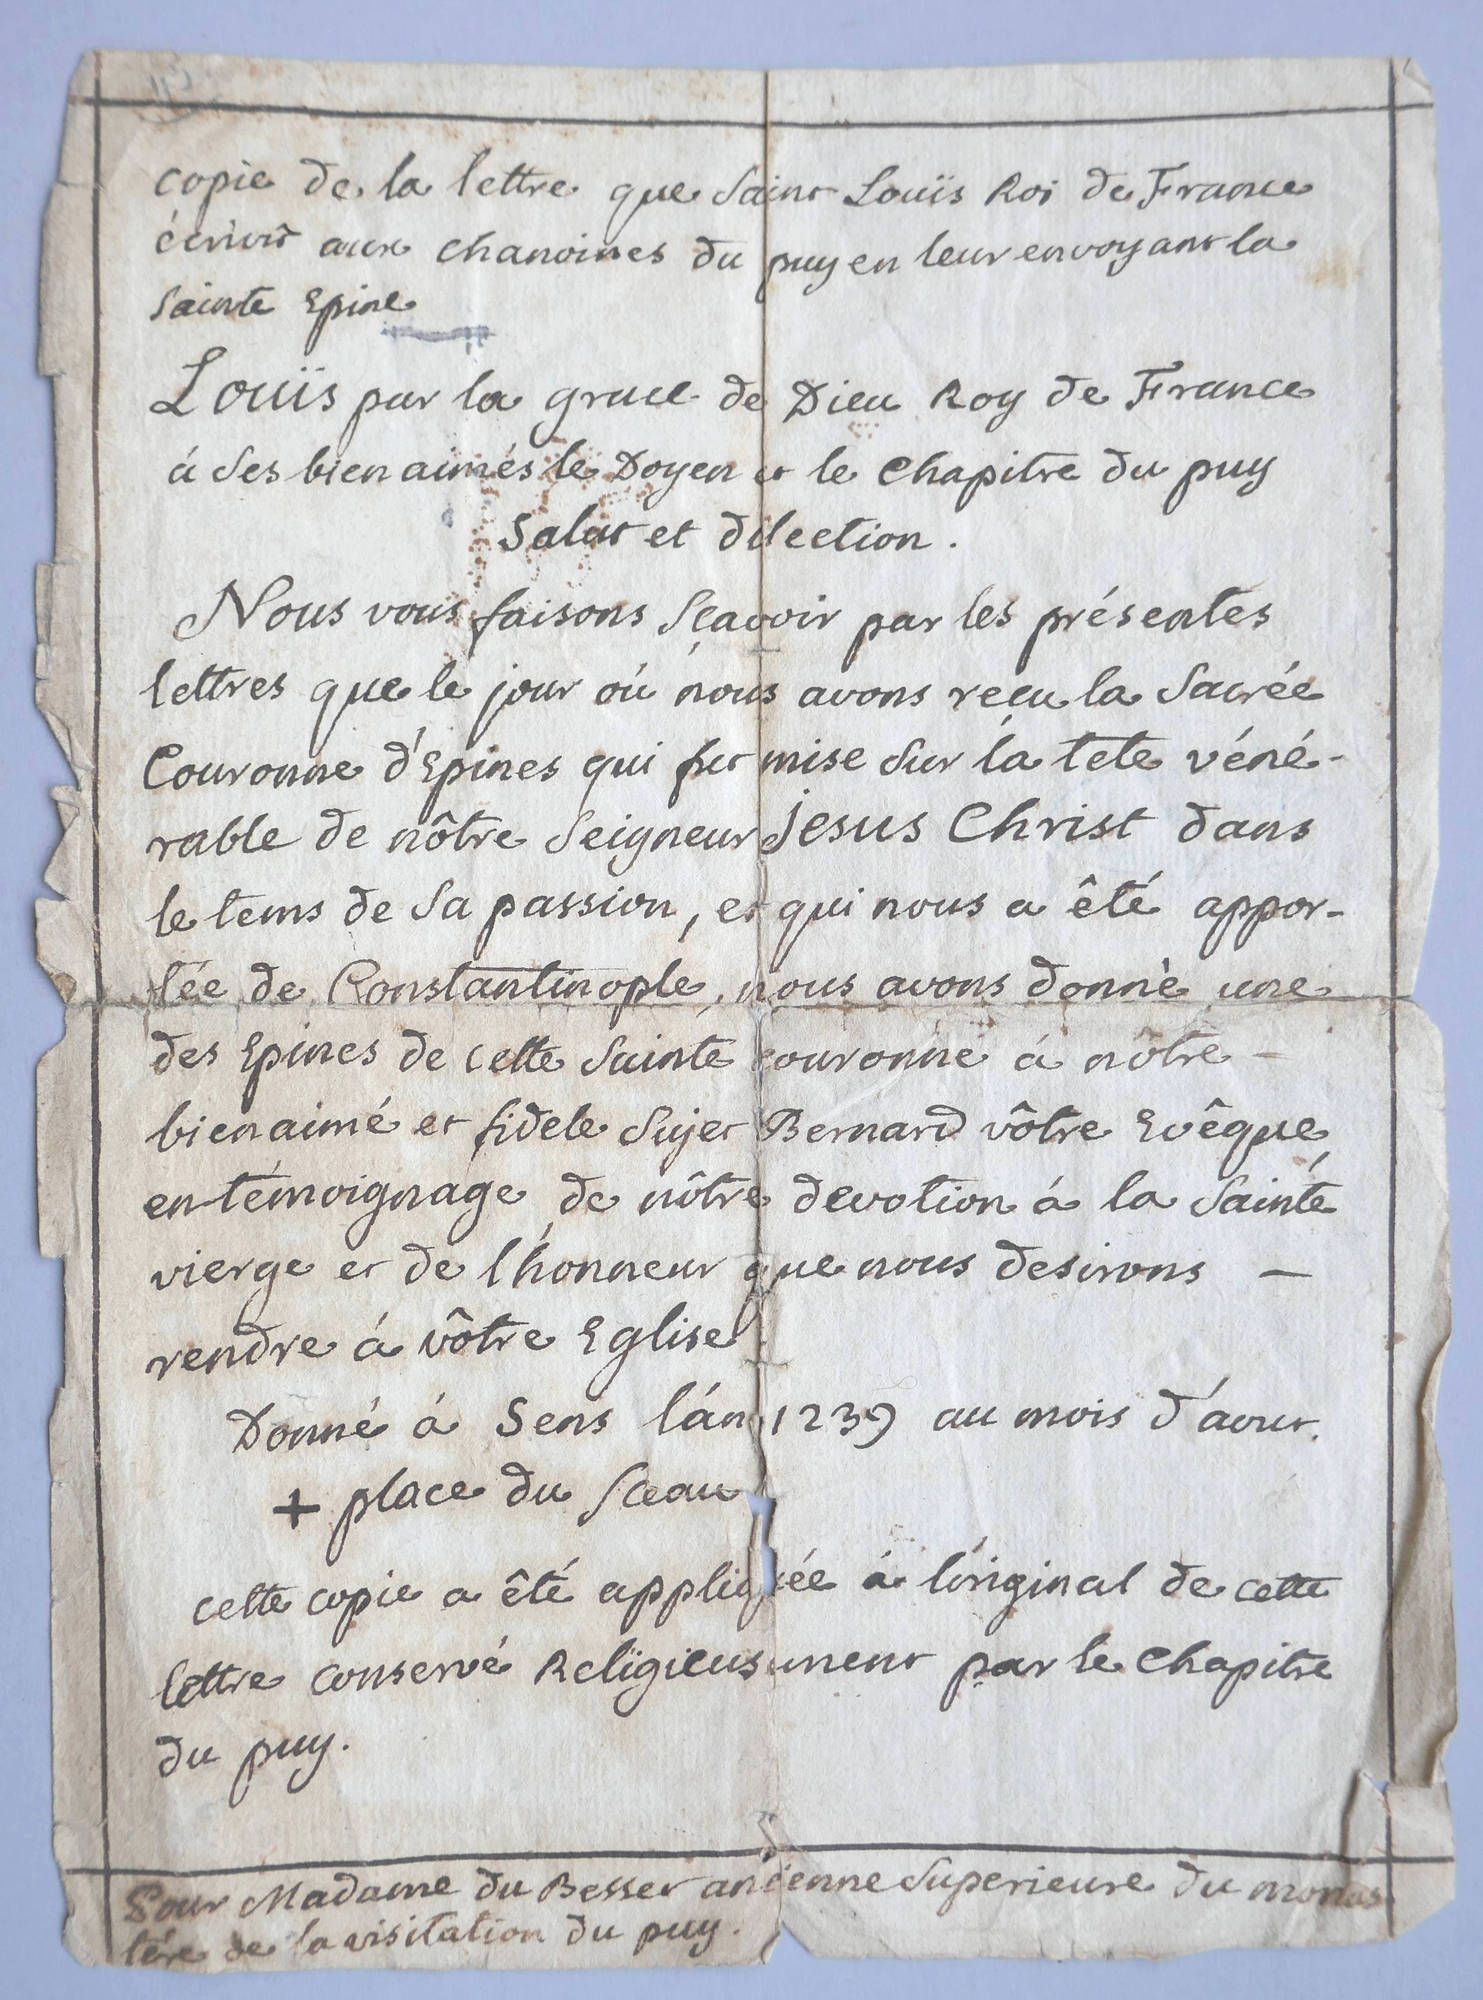 copie de la lettre que Saint Louïs Roi de France
écrivit aux chanoines du puy en leur envoyant la
Sainte Epine
Louïs par la grace de Dieu Roy de France
á Ses bien aimés le Doyen et le Chapitre du puy
Salut et dilection.
Nous vous faisons Sçavoir par les présentes
lettres que le jour oú nous avons reçu la Sacrée
Couronne d'Epines qui fut mise Sur la tete véné-
rable de nôtre Seigneur jesus Christ dans
le tems de Sa passion, et qui nous a êté appor-
tée de Constantinople, nous avons donné une
des Epines de cette Sainte couronne á nôtre -
bien aimé et fidele Sujet Bernard vôtre Evêque,
en témoignage de nôtre devotion á la Sainte
vierge et de l'honneur que nous desirons -
rendre á vôtre Eglise.
Donné á Sens l'án 1239 au mois d'aout.
+ place du Sceau
cette copie a êté appliquée á l'original de cette
lettre conservé Religieusement par le Chapitre
du puy.
Pour Madame du Besset ancienne Superieure du monas
tére de la visitation du puy.